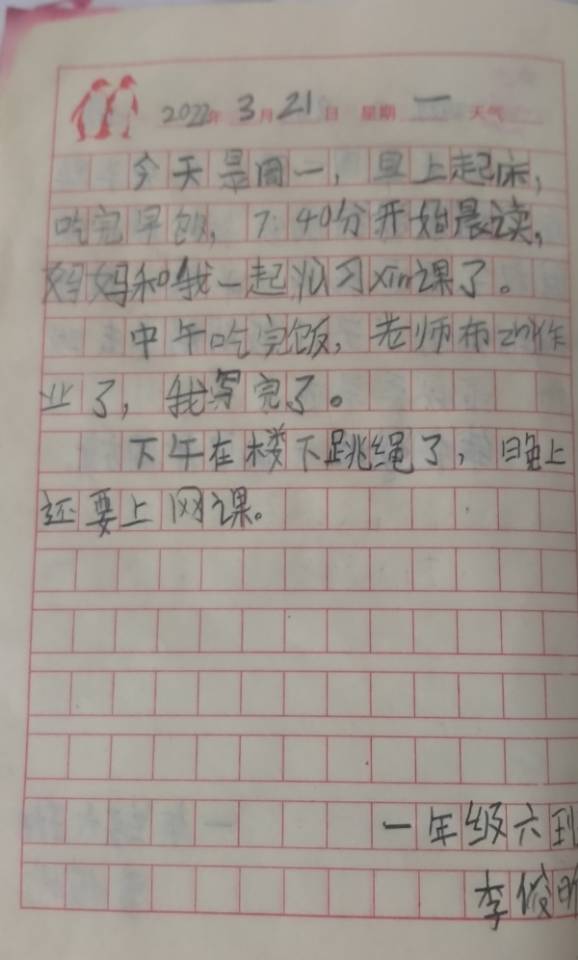 2022年3月21日 星期一 天气
今天是周一，早上起床，
吃完早饭，7:40分开始晨读，
妈妈和我一起预习xin课了。
中午吃完饭，老师布zhi作
业了，我写完了。
下午在楼下跳绳了，晚上
还要上网课。
一年级六
李俊